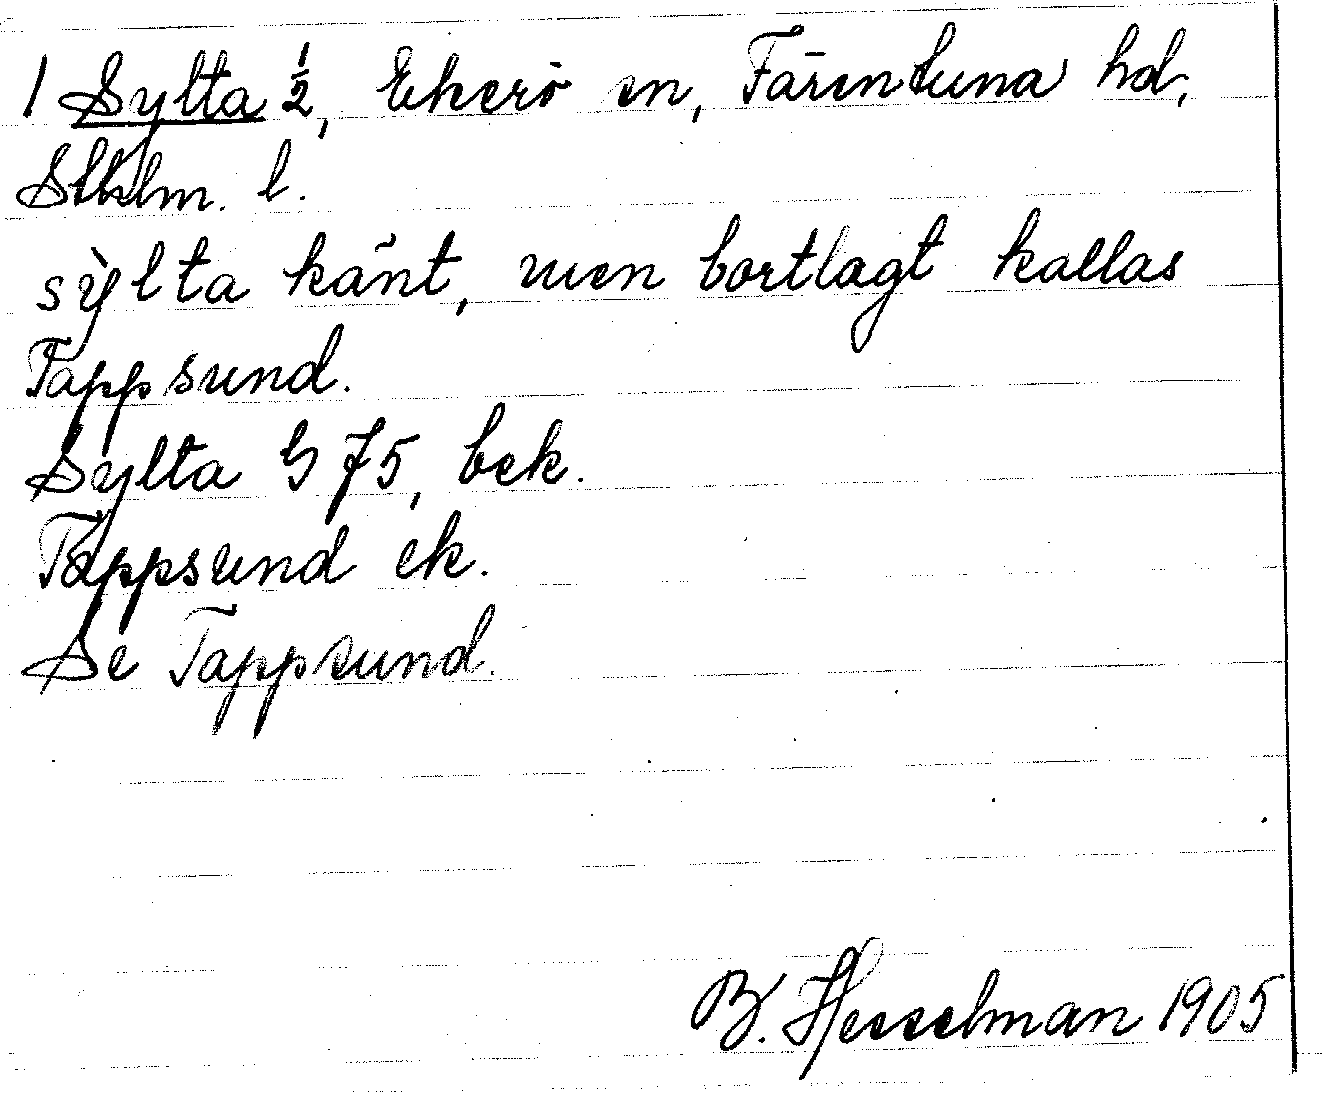 1 Sylta ½, Ekerö sn, Färentuna hd,
Sthlm. l.
sỳlta känt, men bortlagt kallas
Tappsund.
Sylta G 75, bek.
Tappsund ek.
Se Tappsund.
B. Hesselman 1905